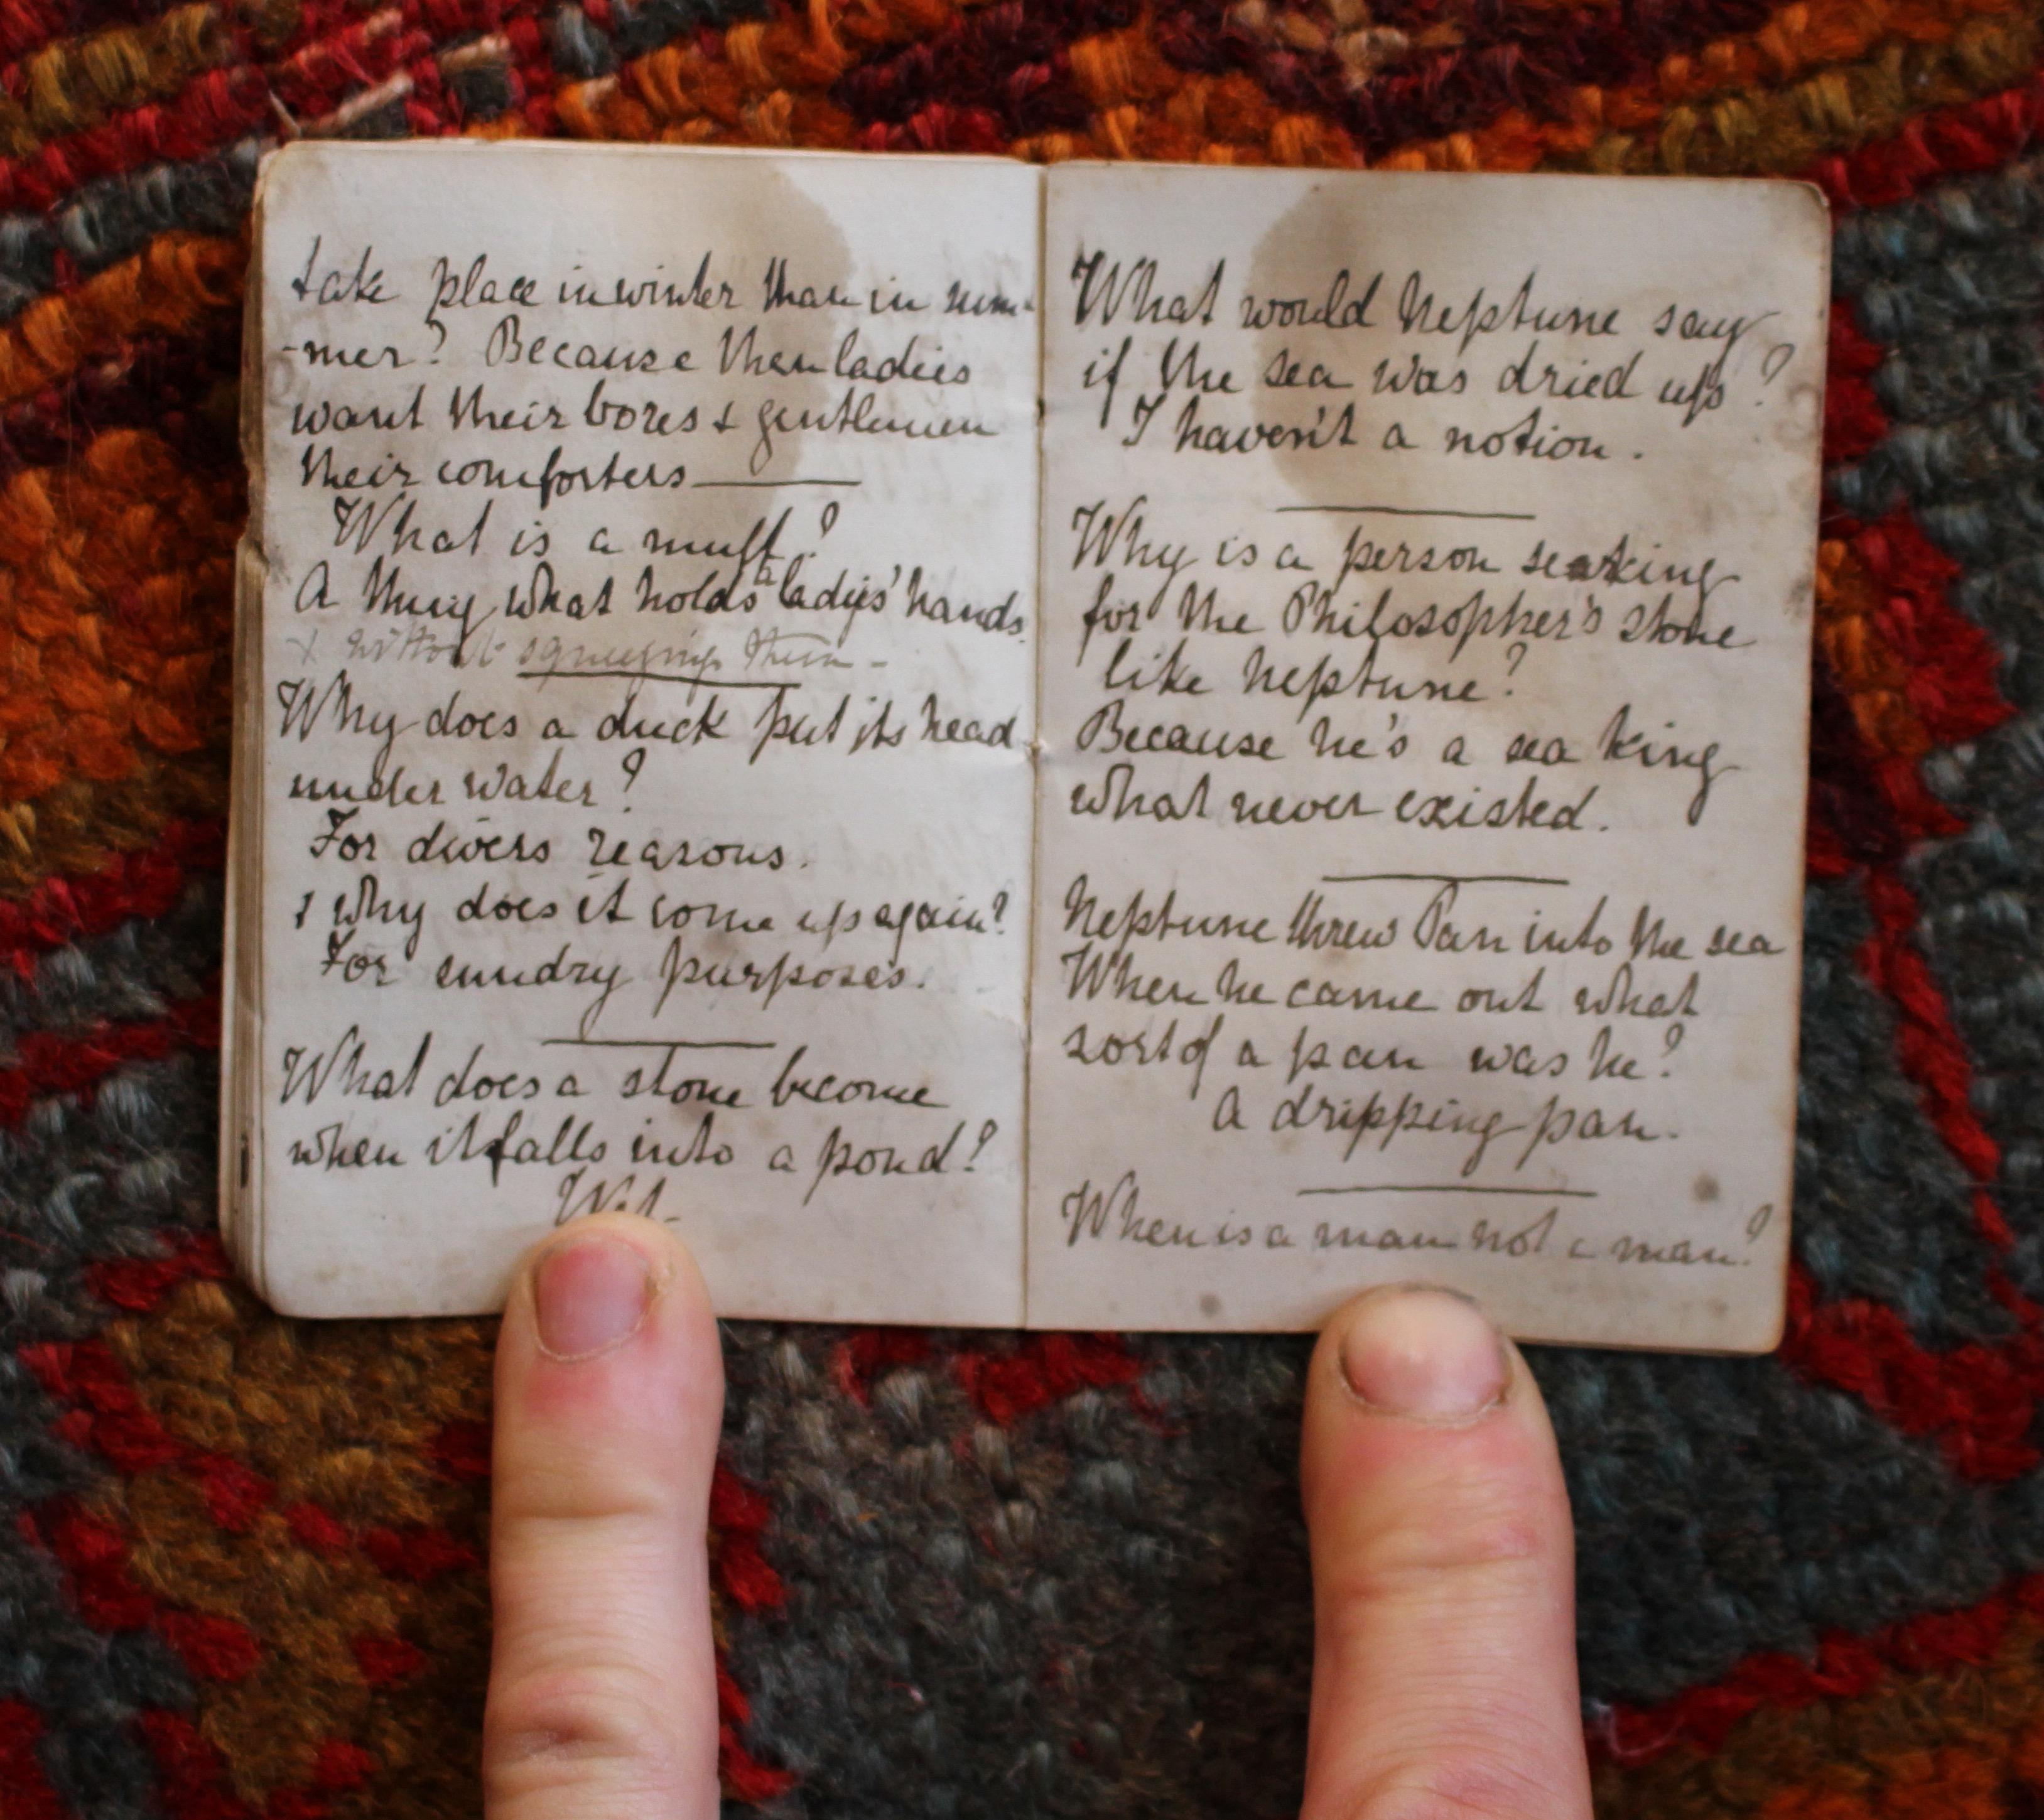 take place in winter than in sum-
-mer? Because then ladies
want their bores & gentlemen
their comforters
What is a muff?
A thing what holds a ladys' hands
& without squeezing them -
Why does a duck put its head
under water?
For divers reasons.
& why does it come up again?
For sundry purposes.
What does a stone become
when it falls into a pond?
Wet.
What would Neptune say
if the sea was dried up?
I haven't a notion.
Why is a person seaking
for the Philosopher's stone
like Neptune?
Because he's a sea king
what never existed.
Neptune threw Pan into the sea
When he came out what
sort of a pan was he?
A dripping pan.
When is a man not a man?